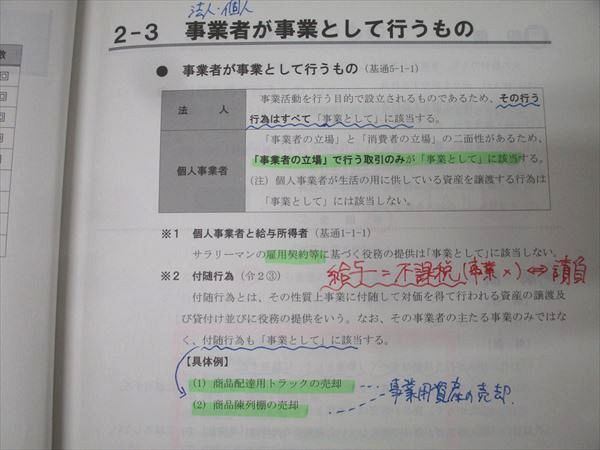 法人・個人
2-3 事業者が事業として行うもの
● 事業者が事業として行うもの（基通5-1-1）
数
法 人
事業活動を行う目的で設立されるものであるため、その行う
行為はすべて「事業として」に該当する。
個人事業者
「事業者の立場」と「消費者の立場」の二面性があるため、
「事業者の立場」で行う取引のみが「事業として」に該当する。
（注）個人事業者が生活の用に供している資産を譲渡する行為は
「事業として」には該当しない。
※1 個人事業者と給与所得者（基通1-1-1）
サラリーマンの雇用契約等に基づく役務の提供は「事業として」に該当しない。
※2 付随行為（令2③）
給与＝不課税(事業×)⇔請負
付随行為とは、その性質上事業に付随して対価を得て行われる資産の譲渡及
び貸付け並びに役務の提供をいう。なお、その事業者の主たる事業のみではな
く、付随行為も「事業として」に該当する。
【具体例】
(1) 商品配達用トラックの売却
(2) 商品陳列棚の売却
事業用資産の売却.